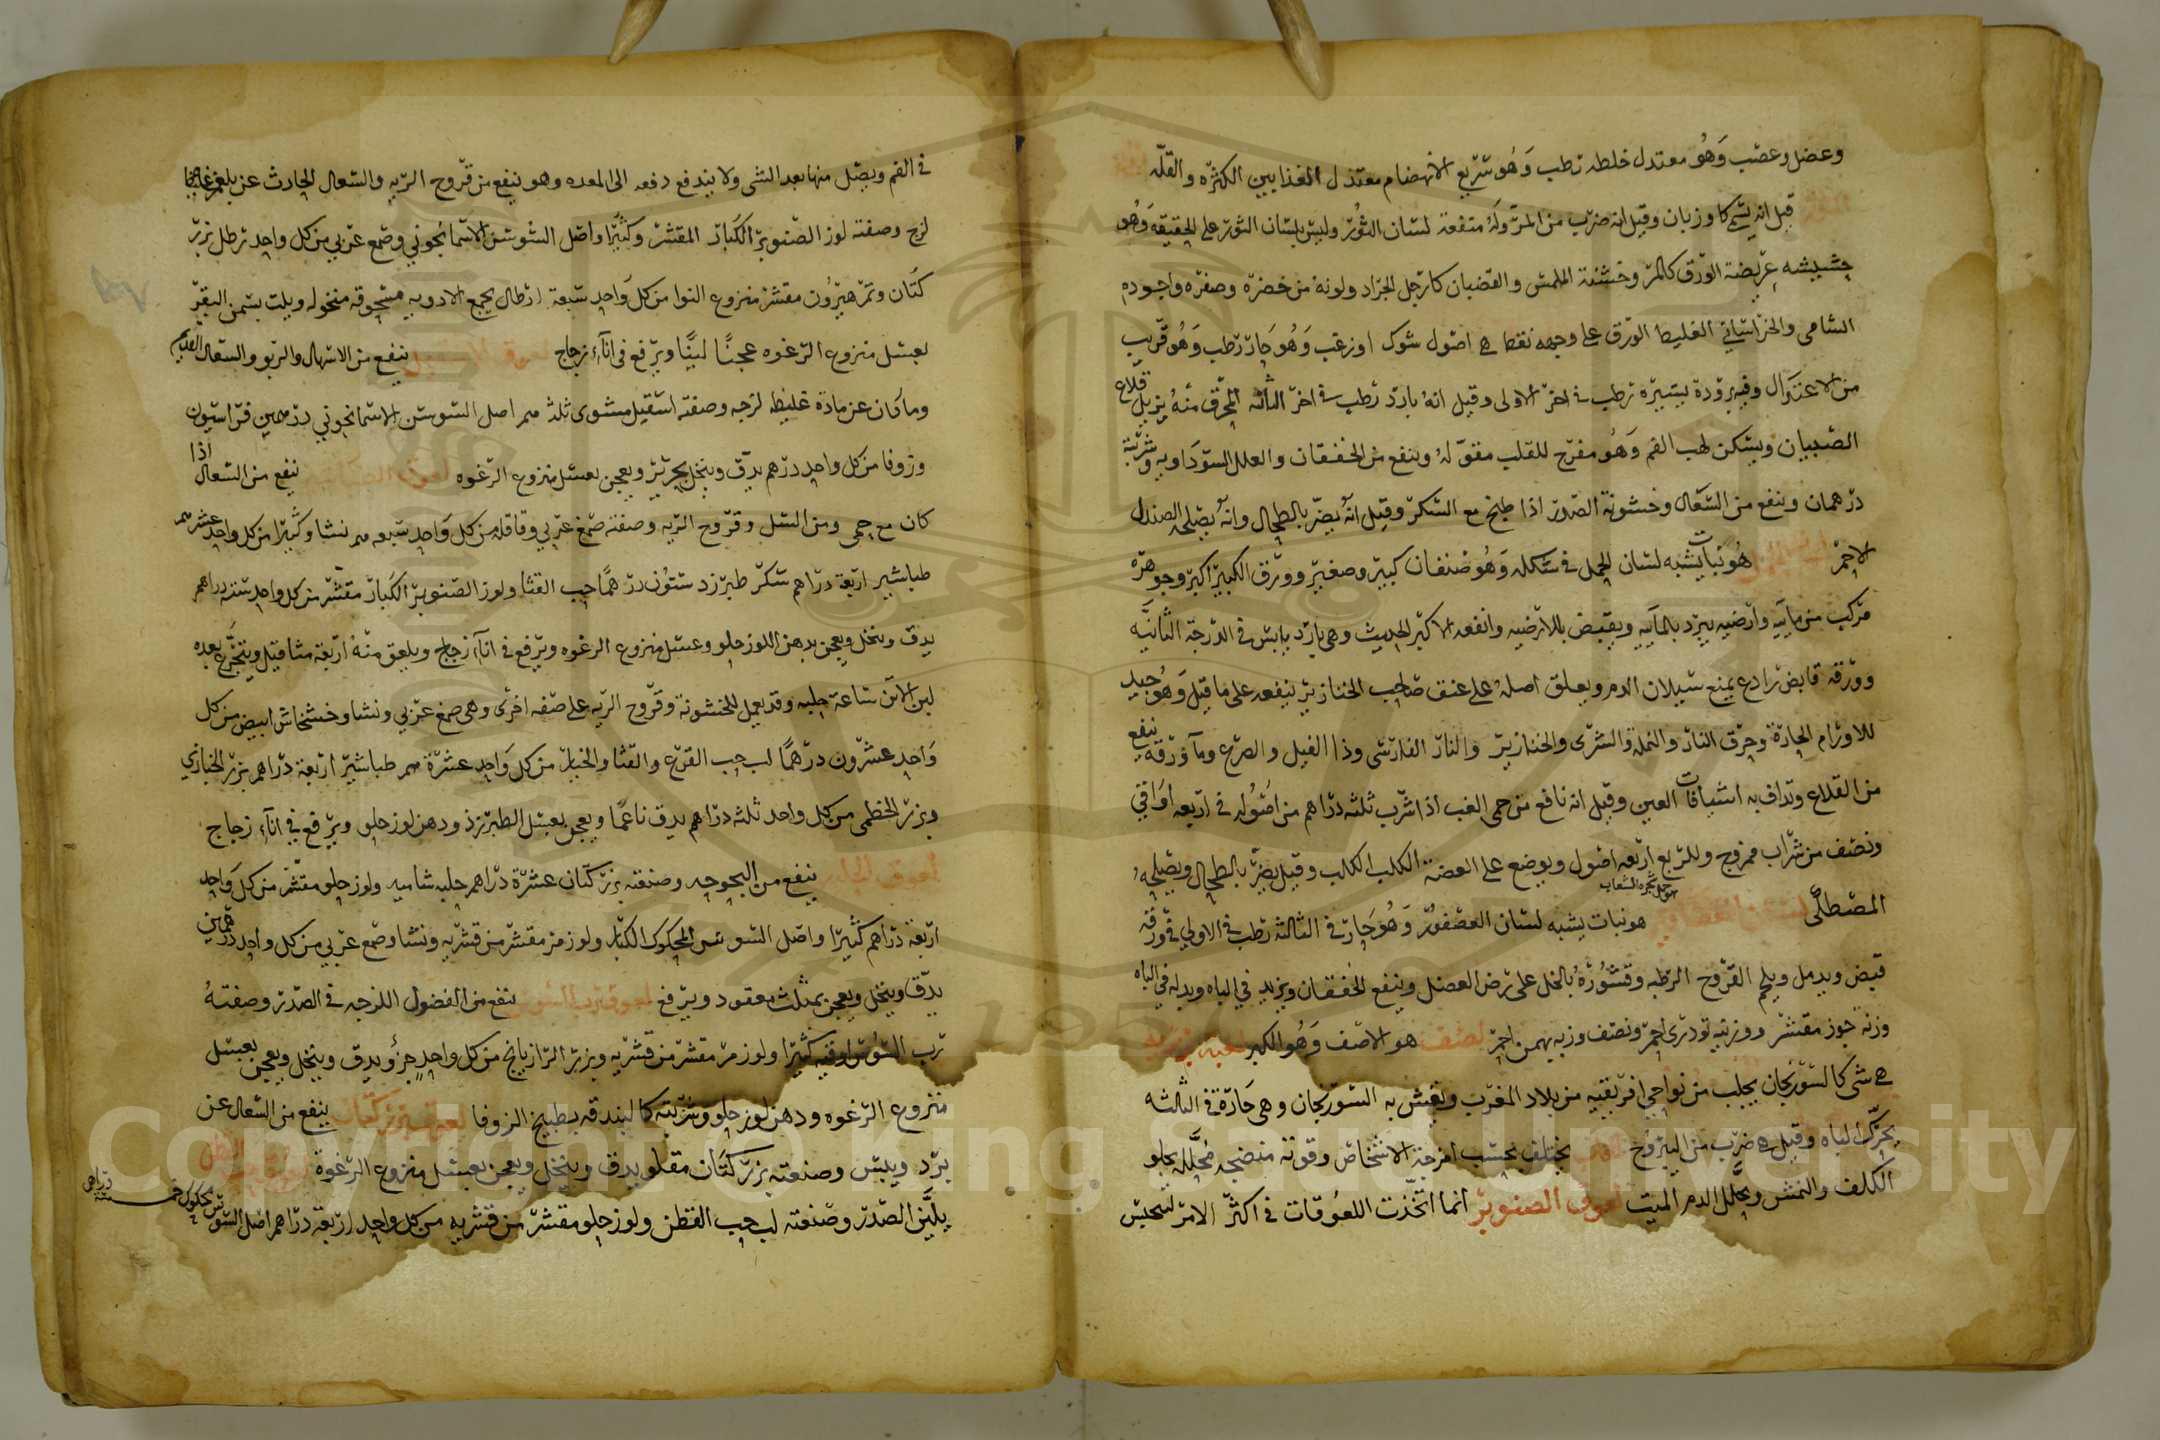 وعضل وعصب وهو معتدل خلطه رطب وهو سريع الانهضام معتدل الغذا بين الكثره والقله
قيل انه يسمى كاوزبان وقيل انه ضرب من المرو له منفعة لسان الثور وليس بلسان الثور على الحقيقه وهو
حشيشه عريضة الورق كالمرو خشنة الملمس والقضبان كارجل الجراد ولونه من خضرة وصفره واجوده
الشامى والخراسانى الغليظ الورق على وجهه نقط هى اصول شوك او زغب وهو حار رطب وهو قريب
من الاعتدال وفيه برودة يسيره رطب فى اخر الاولى وقيل انه بارد رطب فى اخر الثالثه المحرق منه يزيل قلاع
الصبيان ويسكن لهب الفم وهو مفرح للقلب مقو له وينفع من الخفقان والعلل السوداويه وشربته
درهمان وينفع من السعال وخشونة الصدر اذا طبخ مع السكر وقيل انه يضر بالطحال وانه يصلحه الصندل
الاحمر لسان الحمل هو نبات يشبه لسان الحمل فى شكله وهو صنفان كبير وصغير وورق الكبير اكبر وجوهره
مركب من مائيه وارضيه يبرد بالمائيه ويقبض بالارضيه وانفعه الاكبر الحديث وهى بارد يابس فى الدرجة الثانيه
وورقه قابض رادع يمنع سيلان الدم ويعلق اصله على عنق صاحب الخنازير ينفعه على ما قيل وهو جيد
للاورام الحارة وحرق النار والنملة والشرى والخنازير والنار الفارسى وذا الفيل والصرع وما ورقه ينفع
من القلاع وتداف به اشيافات العين وقيل انه نافع من حمى الغب اذا شرب ثلثه دراهم من اصوله فى اربعه اواقى
ونصف من شراب ممزوج وللربع اربعه اصول ويوضع على العضة الكلب الكلب وقيل يضر بالطحال ويصلحه
المصطكى لسان العصافير هو نبات يشبه لسان العصفور وهو حار فى الثالثة رطب فى الاولى فى ورقه
هو حمل شجرة الشعاب
قبض ويدمل ويلحم القروح الرطبه وقشوره بالخل على رض العضل وينفع الخفقان ويزيد فى الباه وبدله فى الباه
وزنه جوز مقشر ووزنه تودرى احمر ونصف وزنه بهمن احمر لصف هو الاصف وهو الكبر لعبه بربريه
هى شى كالسورنجان يجلب من نواحى افريقيه من بلاد المغرب ويغش به السورنجان وهى حارة فى الثالثه
يحرك الباه وقيل هى ضرب من اليبروح يختلف بحسب امزجة الاشخاص وقوته منضجه محلله يجلو
الكلف والنمش ويحلل الدم الميت لعوق الصنوبر انما اتخذت اللعوقات فى اكثر الامر لتحبس
فى الفم ويصل منها بعد الشى ولا يندفع دفعه الى المعده وهو ينفع من قروح الريه والسعال الحادث عن بلغم غليظ
لزج وصفته لوز الصنوبر الكبار المقشر وكثيرا واصل السوسن الاسمانجونى وصمغ عربى من كل واحد رطل بزر
كتان وتمر هيرون مقشر منزوع النوا من كل واحد سبعة ارطال يجمع الادويه مسحوقه منخوله ويلت بسمن البقر
بعسل منزوع الرغوه عجنا لينا ويرفع فى اناء زجاج ينفع من الاسهال والربو والسعال القديم
وما كان عن مادة غليظه لزجه وصفته اسقيل مشوى ثلثه اصل السوسن الاسمانجونى درهمين فراسيون
وزوفا من كل واحد درهم يدق وينخل بحرير ويعجن بعسل منزوع الرغوه ينفع من السعال اذا
كان مع حمى ومن السل وقروح الريه وصفته صمغ عربى وقاقله من كل واحد سبعه نشا وكثيرا من كل واحد عشر
طباشير اربعة دراهم سكر طبرزد ستون درهما حب القثا ولوز الصنوبر الكبار مقشر من كل واحد سته دراهم
يدق وينخل ويعجن بدهن اللوز حلو وعسل منزوع الرغوه ويرفع فى اناء زجاج ويلعق منه اربعة مثاقيل ويتجرع بعده
لبن الاتن ساعة حلبه وقد يعمل للخشونة وقروح الريه على صفه اخرى وهى صمغ عربى ونشا وخشخاش ابيض من كل
واحد عشرون درهما لب حب القرع والقثا والخيار من كل واحد عشرة طباشير اربعة دراهم بزر الخبازى
وبزر الخطمى من كل واحد ثلثه دراهم يدق ناعما ويعجن بعسل الطبرزد ودهن لوز حلو ويرفع فى اناء زجاج
لعوق الحلبه ينفع من البحوحه وصفته بزر كتان عشرة دراهم حلبه شاميه ولوز حلو مقشر من كل واحد
اربعة دراهم كثيرا واصل السوسن المحكوك الكبار ولوز مر مقشر من قشريه ونشا وصمغ عربى من كل واحد درهمين
يدق وينخل ويعجن بمثلث معقود ويرفع لعوق رب السوس ينفع من الفضول اللزجه فى الصدر وصفته
رب السوس اوقيه كثيرا ولوز مر مقشر من قشريه وبزر الرازيانج من كل واحد جزؤ يدق وينخل ويعجن بعسل
منزوع الرغوه ودهن لوز حلو وشربته كالبندقه بطبيخ الزوفا لعوق بزر كتان ينفع من السعال عن
برد ويبس وصنعته بزر كتان مقلو يدق وينخل ويعجن بعسل منزوع الرغوة
يلين الصدر وصنعته لب حب القطن ولوز حلو مقشر من قشريه من كل واحد اربعة دراهم اصل السوس محكوك خمسة دراهم
Copyright © King Saud University
1957